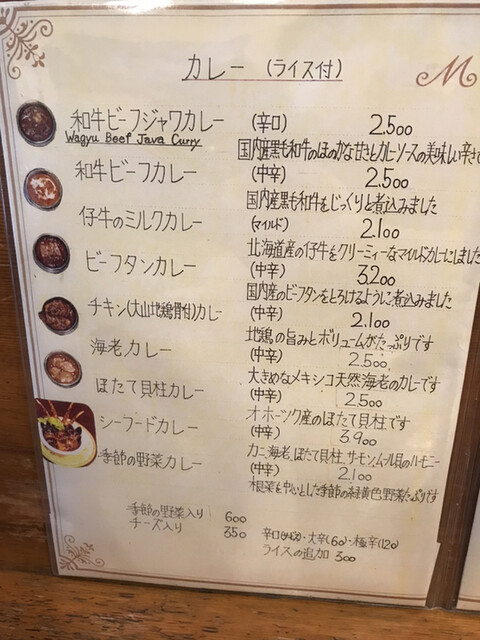 カレー (ライス付)
M
和牛ビーフジャワカレー (辛口) 2.500
Wagyu Beef Java Curry
国内産黒毛和牛のほのかな甘さとカレーソースの美味しい辛さ
和牛ビーフカレー (中辛) 2.500
国内産黒毛和牛をじっくりと煮込みました
仔牛のミルクカレー (マイルド) 2.100
北海道産の仔牛をクリーミィーなマイルドカレーにしました
ビーフタンカレー (中辛) 3.200
国内産のビーフタンをとろけるように煮込みました
チキン(大山地鶏骨付)カレー (中辛) 2.100
地鶏の旨みとボリュームがたっぷりです
海老カレー (中辛) 2.500
大きめなメキシコ天然海老のカレーです
ほたて貝柱カレー (中辛) 2.500
オホーツク産のほたて貝柱です
シーフードカレー (中辛) 3.900
カニ、海老、ほたて貝柱、サーモン、ムール貝のハーモニー
季節の野菜カレー (中辛) 2.100
根菜を中心とした季節の緑黄色野菜たっぷりです
季節の野菜入り 600
チーズ入り 350
辛口 ・大辛(60)・極辛(120)
ライスの追加 300